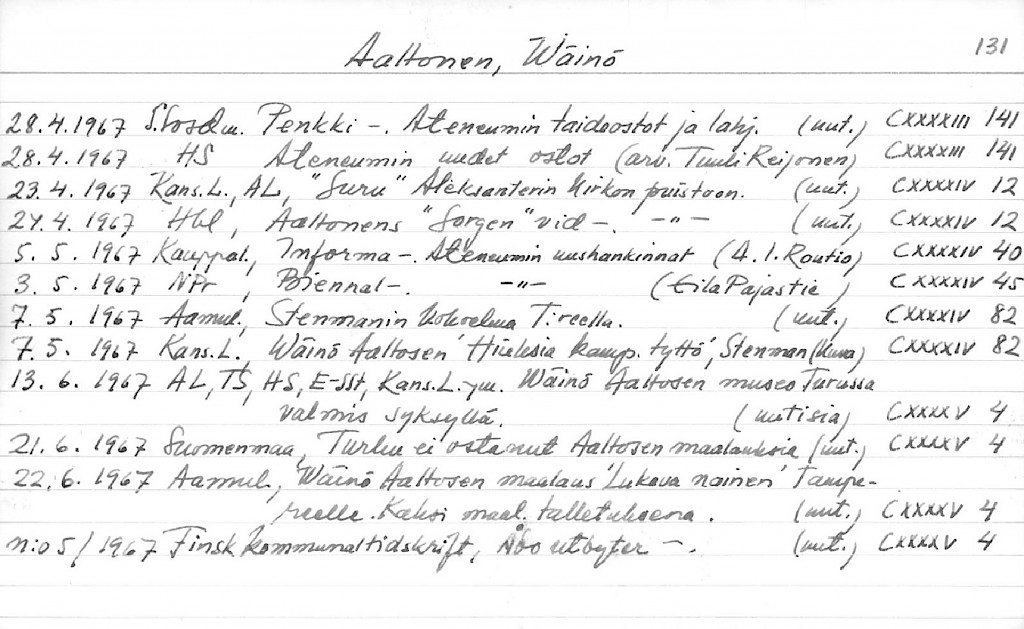 Aaltonen, Wäinö 131
28.4.1967 S.Sosdm. Penkki -. Ateneumin taideostot ja lahj. (uut.) CXXXXIII 141
28.4.1967 HS Ateneumin uudet ostot (arv. Tuuli Reijonen) CXXXXIII 141
23.4.1967 Kans.L., AL, "Suru" Aleksanterin kirkon puistoon. (uut.) CXXXXIV 12
24.4.1967 Hbl, Aaltonens "Sorgen" vid -. -"- (uut.) CXXXXIV 12
5.5.1967 Kauppal., Informa -. Ateneumin uushankinnat (A.I.Routio) CXXXXIV 40
3.5.1967 NPr, Biennal -. -"- (Eila Pajastie) CXXXXIV 45
7.5.1967 Aamul., Stenmanin kokoelma T:reella. (uut.) CXXXXIV 82
7.5.1967 Kans.L., Wäinö Aaltosen 'Hiuksia kamp. tyttö', Stenman (kuva) CXXXXIV 82
13.6.1967 AL, TS, HS, E-SSt, Kans.L. ym. Wäinö Aaltosen museo Turussa
valmis syksyllä. (uutisia) CXXXXV 4
21.6.1967 Suomenmaa, Turku ei ostanut Aaltosen maalauksia (uut.) CXXXXV 4
22.6.1967 Aamul., Wäinö Aaltosen maalaus 'Lukeva nainen' Tampe-
reelle. Kaksi maal. talletuksena. (uut.) CXXXXV 4
n:o 5/1967 Finsk kommunaltidskrift, Åbo utbyter -. (uut.) CXXXXV 4